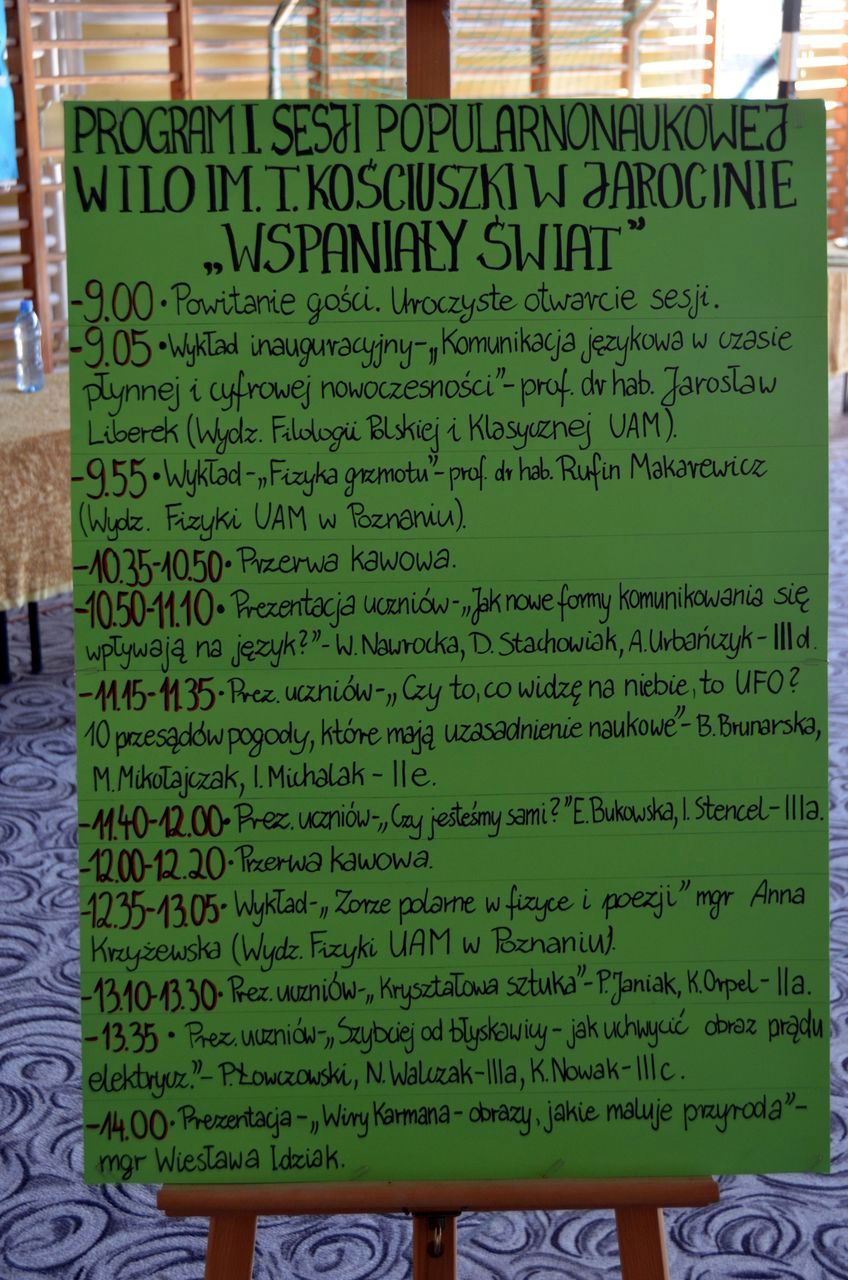 PROGRAM I. SESJI POPULARNONAUKOWEJ
W I LO IM. T. KOŚCIUSZKI W JAROCINIE
„WSPANIAŁY ŚWIAT"
-9.00 • Powitanie gości. Uroczyste otwarcie sesji.
-9.05 • Wykład inauguracyjny-„Komunikacja językowa w czasie
płynnej i cyfrowej nowoczesności"- prof. dr hab. Jarosław
Liberek (Wydz. Filologii Polskiej i Klasycznej UAM).
-9.55 • Wykład-„Fizyka grzmotu"- prof. dr hab. Rufin Makarewicz
(Wydz. Fizyki UAM w Poznaniu).
-10.35-10.50 • Przerwa kawowa.
-10.50-11.10 • Prezentacja uczniów-„Jak nowe formy komunikowania się
wpływają na język?"- W. Nawrocka, D. Stachowiak, A. Urbańczyk - III d.
-11.15-11.35 • Prez. uczniów-„Czy to, co widzę na niebie, to UFO?
10 przesądów pogody, które mają uzasadnienie naukowe"- B. Brunarska,
M. Mikołajczak, I. Michalak - II e.
-11.40-12.00 • Prez. uczniów-„Czy jesteśmy sami?" E. Bukowska, I. Stencel - III a.
-12.00-12.20 • Przerwa kawowa.
-12.35-13.05 • Wykład-„Zorze polarne w fizyce i poezji" mgr Anna
Krzyżewska (Wydz. Fizyki UAM w Poznaniu).
-13.10-13.30 • Prez. uczniów-„Kryształowa sztuka"- P. Janiak, K. Orpel - II a.
-13.35 • Prez. uczniów-„Szybciej od błyskawicy - jak uchwycić obraz prądu
elektrycz."- P. Łowczowski, N. Walczak - III a, K. Nowak - III c.
-14.00 • Prezentacja-„Wiry Karmana - obrazy, jakie maluje przyroda"-
mgr Wiesława Idziak.